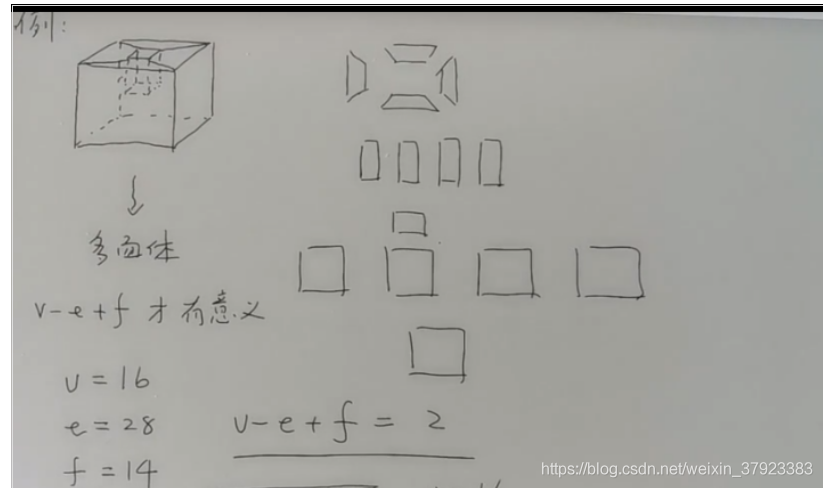 例:
多面体
v-e+f 才有意义
v = 16
e = 28
f = 14
v-e+f = 2
https://blog.csdn.net/weixin_37923383